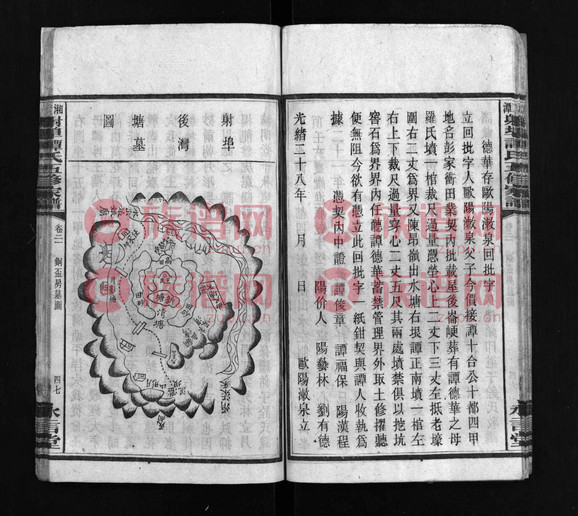 德華存歐陽漵泉回批字
立回批字人歐陽漵泉父子今價接譚十台公十都四甲
地名彭家衝田業契內批載屋後崙陝葬有譚德華之母
羅氏墳一棺裁尺過量憑塋心上二丈下三丈左抵老壕
圍右二丈爲界又陳昂嶺出水塘右垠譚正南墳一棺左
右上下裁尺過量穿心二丈五尺其兩處墳禁俱以挖坑
窖石爲界界內任憑譚德華蓄禁管理界外取土修擢聽
便無阻今欲有憑立此回批字一紙鉗契與譚人收執爲
據
憑契內中證 譚俊章 譚福保 陽漢程
陽价人 陽藝林 劉有德
光緒二十八年 月 日 歐陽漵泉立
射埠後灣塘墓圖
湘潭射埠譚氏五修家譜
卷二
銅盃昜墓圖
四七
永言堂
族谱网